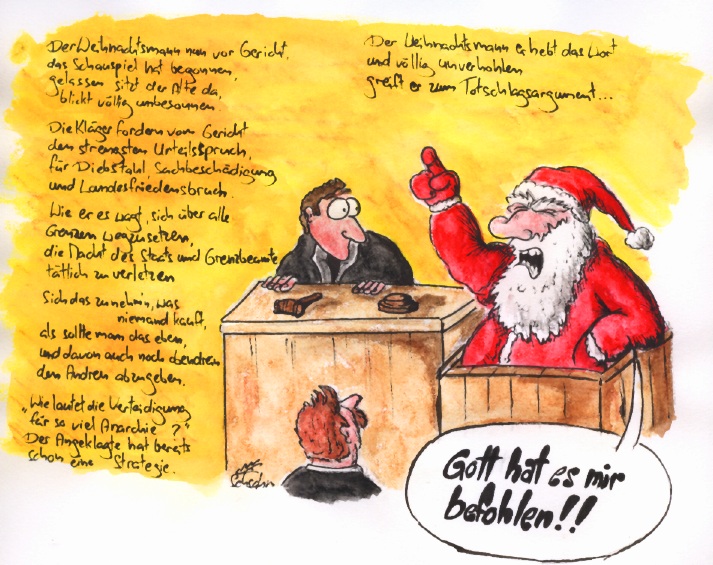 Der Weihnachtsmann nun vor Gericht,
das Schauspiel hat begonnen,
gelassen sitzt der Alte da,
blickt völlig unbesonnen.
Die Kläger fordern vom Gericht
den strengsten Urteilsspruch,
für Diebstahl, Sachbeschädigung
und Landesfriedensbruch.
Wie er es wagt, sich über alle
Grenzen wegzusetzen,
die Macht des Staats und Grenzbeamte
tätlich zu verletzen
Sich das zu nehmin, was
niemand kauft,
als sollte man das eben,
und davon auch noch obendrein
den Andren abzugeben.
"Wie lautet die Verteidigung
für so viel Anarchie?"
Der Angeklagte hat bereits
schon eine Strategie.
Der Weihnachtsmann erhebt das Wort
und völlig unverhohlen
greift er zum Totschlagsargument...
Gott hat es mir
befohlen!!